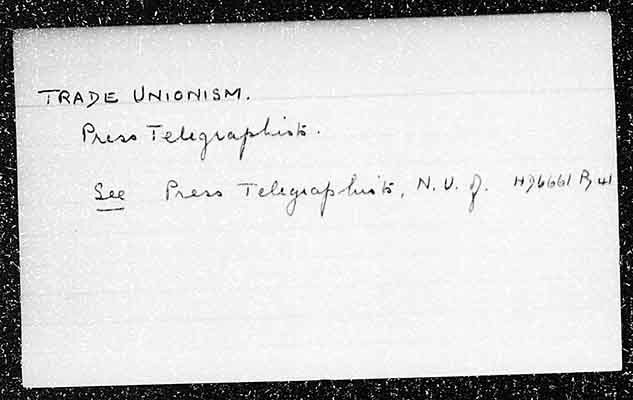 TRADE UNIONISM.
Press Telegraphists.
See Press Telegraphists, N. U. of. HD6661 P41